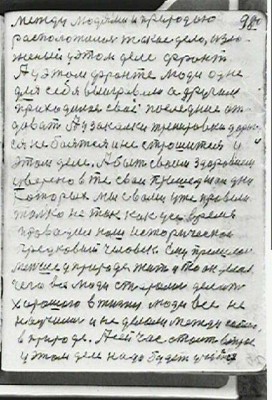 98
между людьми и природою
расположился такое дело, изло-
женый у этом деле фронт
А у этом фронте люди одне
для себя выиграли а другим
приходится своё последние от
давать А у закалки тренировки
ся не боится и не строшится и
этом деле. А быть своим здоровьям
уверено в те свои прешедшаи дни
которые мы с вами уже провели
только не так как усё время
проводил наш исторической
человек ему
у природе жить и так делал
чего все люди старались делать
хорошого в жизни люди все не
научилися и не делали между собою
в природе. А сейчас стоит вопрос
у этом деле надо будет учится